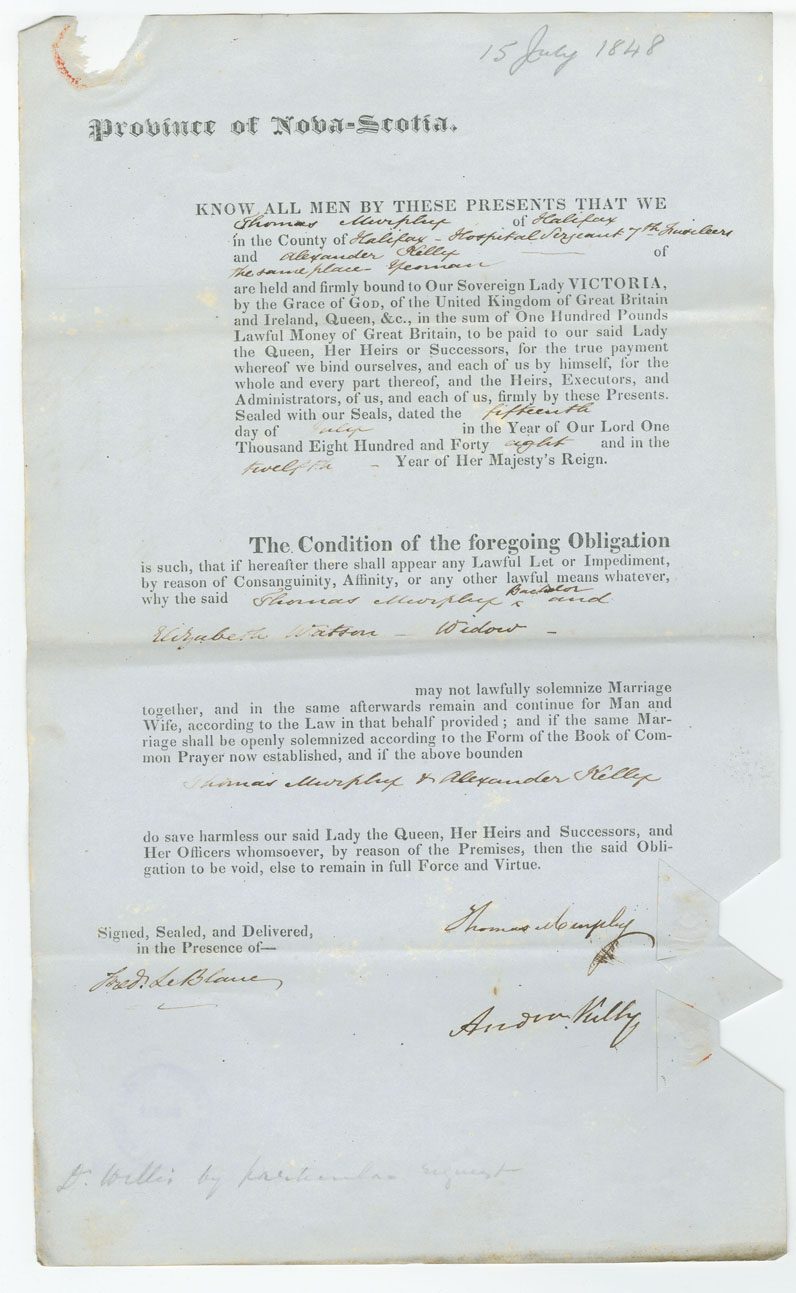 15 July 1848
Province of Nova-Scotia.
KNOW ALL MEN BY THESE PRESENTS THAT WE
Thomas Murphy of Halifax
in the County of Halifax - Hospital Serjeant 7th Fusileers
and Alexander Kelly — of
the same place - Yeoman
are held and firmly bound to Our Sovereign Lady VICTORIA,
by the Grace of GOD, of the United Kingdom of Great Britain
and Ireland, Queen, &c., in the sum of One Hundred Pounds
Lawful Money of Great Britain, to be paid to our said Lady
the Queen, Her Heirs or Successors, for the true payment
whereof we bind ourselves, and each of us by himself, for the
whole and every part thereof, and the Heirs, Executors, and
Administrators, of us, and each of us, firmly by these Presents.
Sealed with our Seals, dated the fifteenth
day of July in the Year of Our Lord One
Thousand Eight Hundred and Forty eight and in the
twelfth - Year of Her Majesty's Reign.
The Condition of the foregoing Obligation
is such, that if hereafter there shall appear any Lawful Let or Impediment,
by reason of Consanguinity, Affinity, or any other lawful means whatever,
why the said Thomas Murphy Bachelor and
Elizabeth Watson - Widow -
may not lawfully solemnize Marriage
together, and in the same afterwards remain and continue for Man and
Wife, according to the Law in that behalf provided; and if the same Mar-
riage shall be openly solemnized according to the Form of the Book of Com-
mon Prayer now established, and if the above bounden
Thomas Murphy & Alexander Kelly
do save harmless our said Lady the Queen, Her Heirs and Successors, and
Her Officers whomsoever, by reason of the Premises, then the said Obli-
gation to be void, else to remain in full Force and Virtue.
Signed, Sealed, and Delivered,
in the Presence of—
Thomas Murphy
Fred. LeBlanc
Andrew Kelly
Dr. Willis by particular request